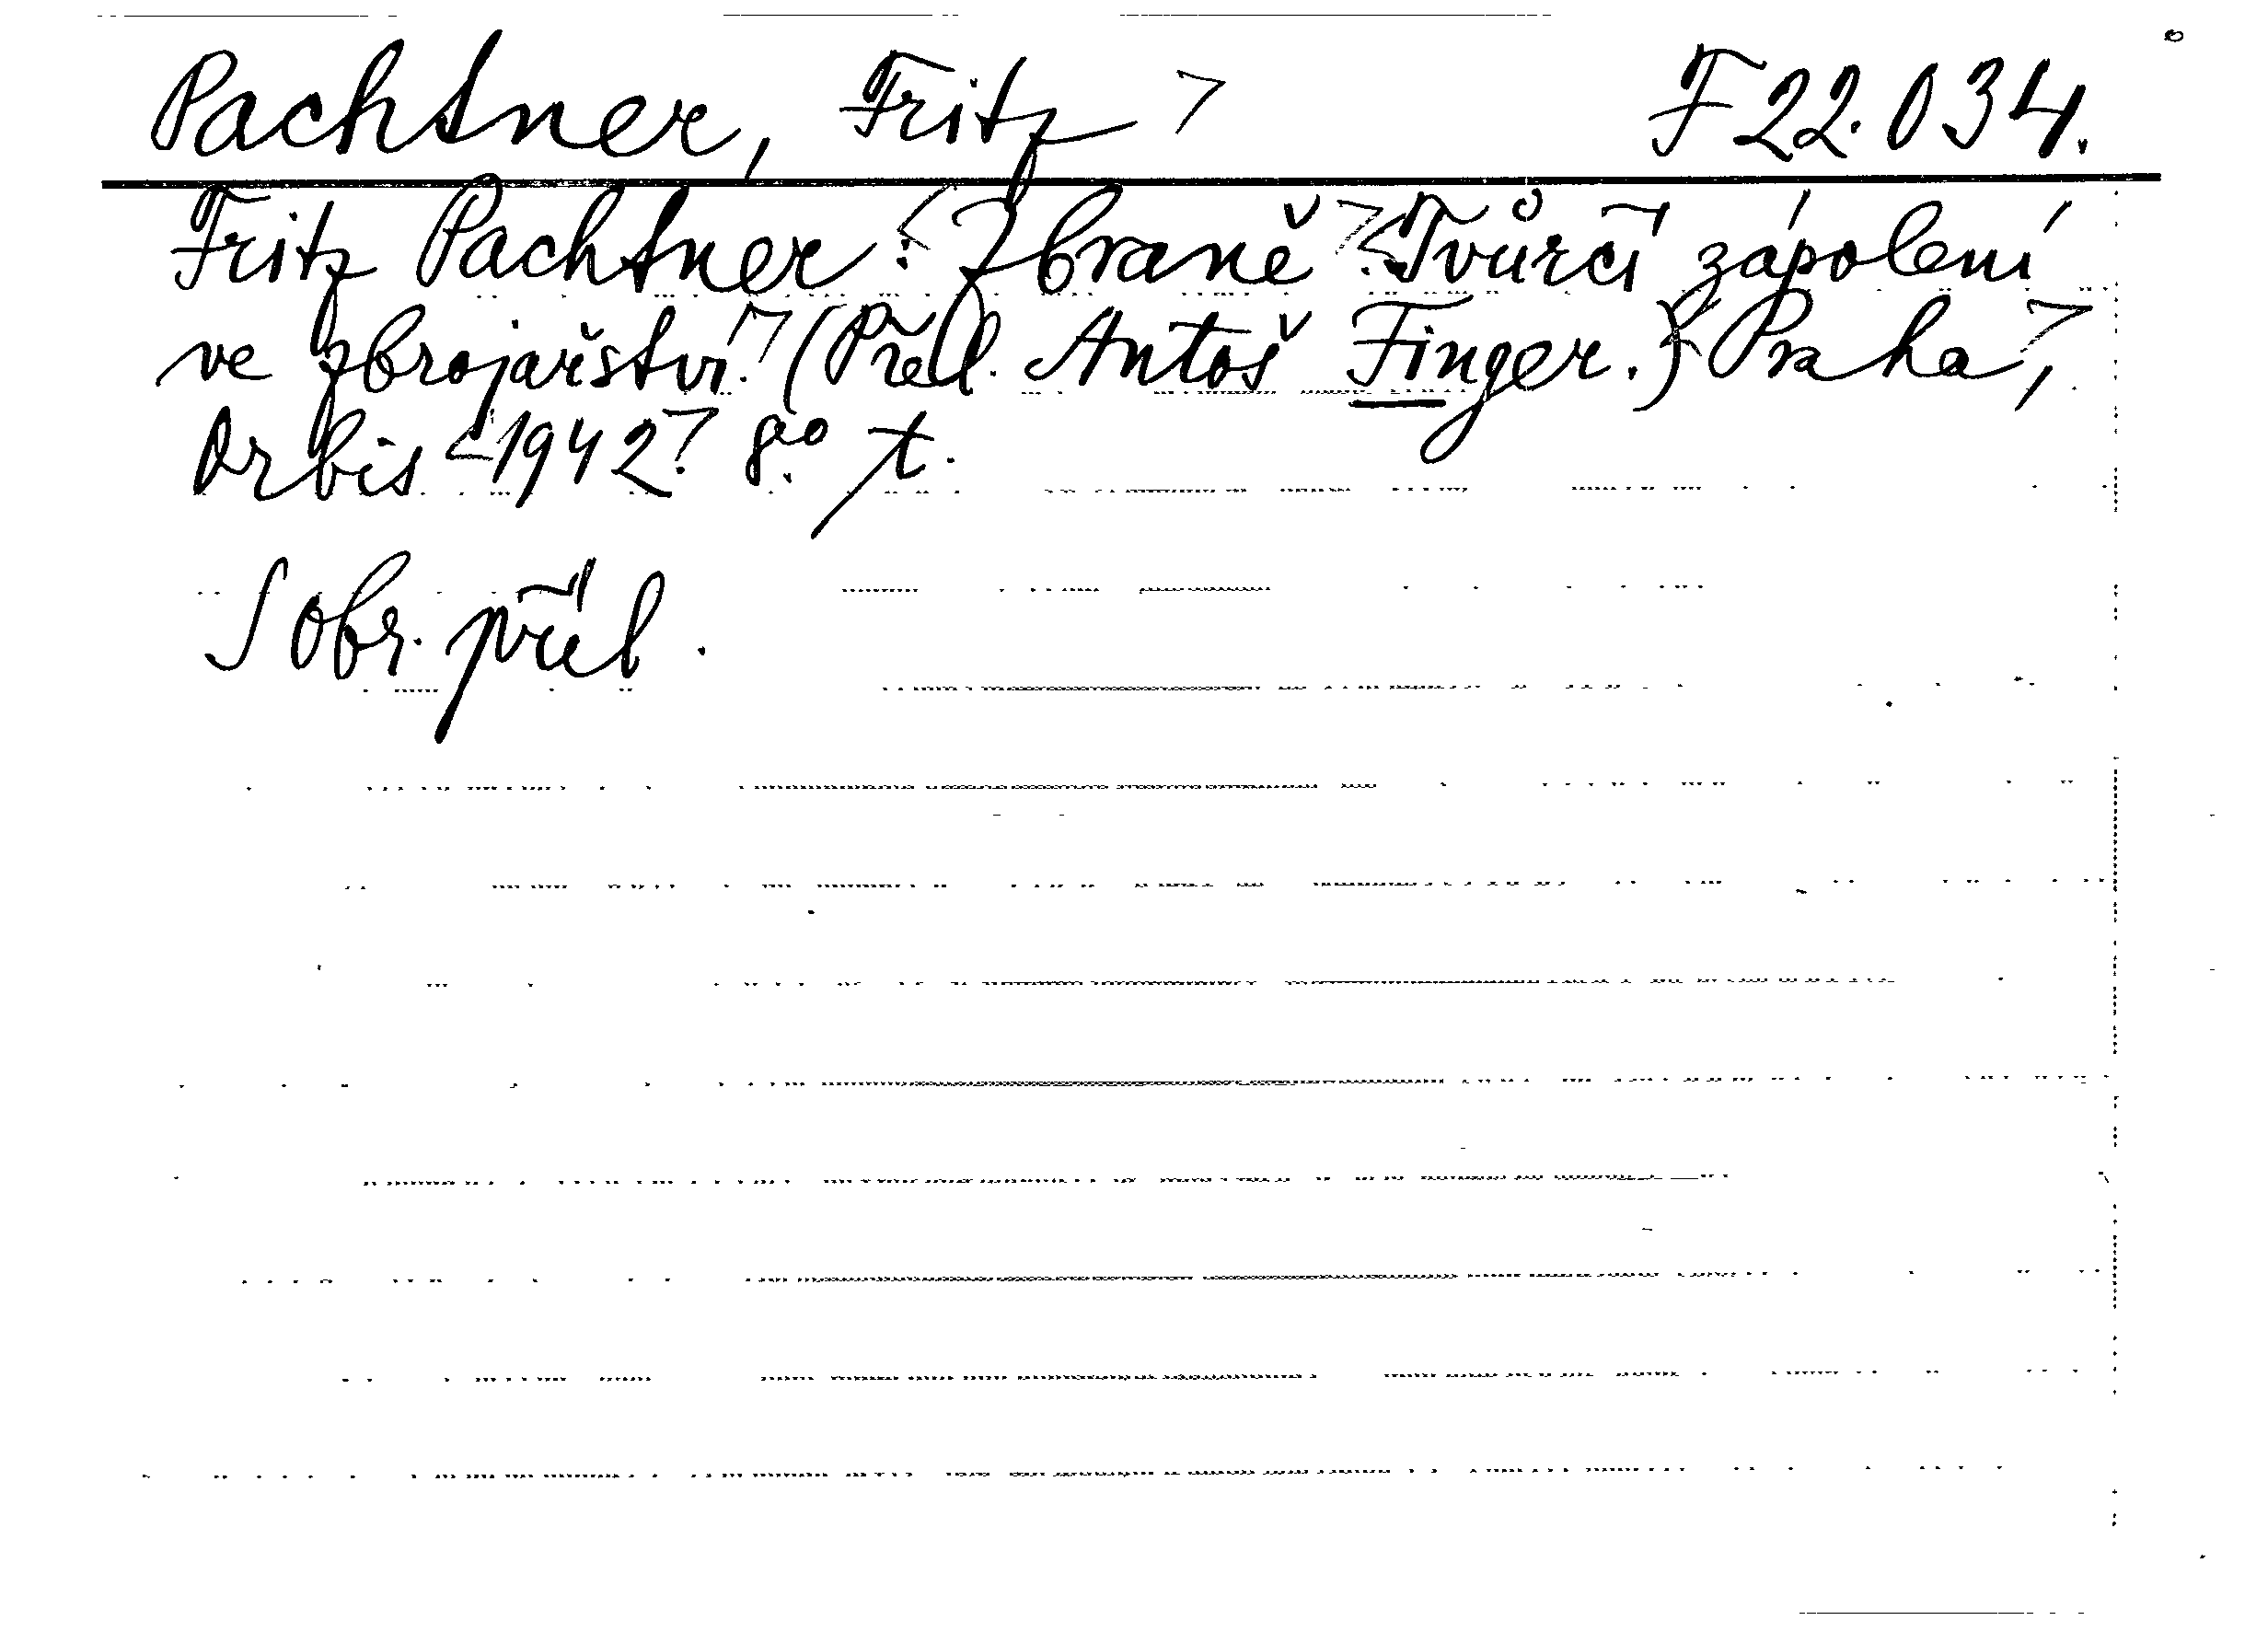 Pachtner, Fritz F 22.034.
Fritz Pachtner: Zbraně. Tvůrčí zápolení
ve zbrojařství. (Přel. Antoš Finger.) Praha,
Orbis 1942. 8.° t.
S obr. příl.